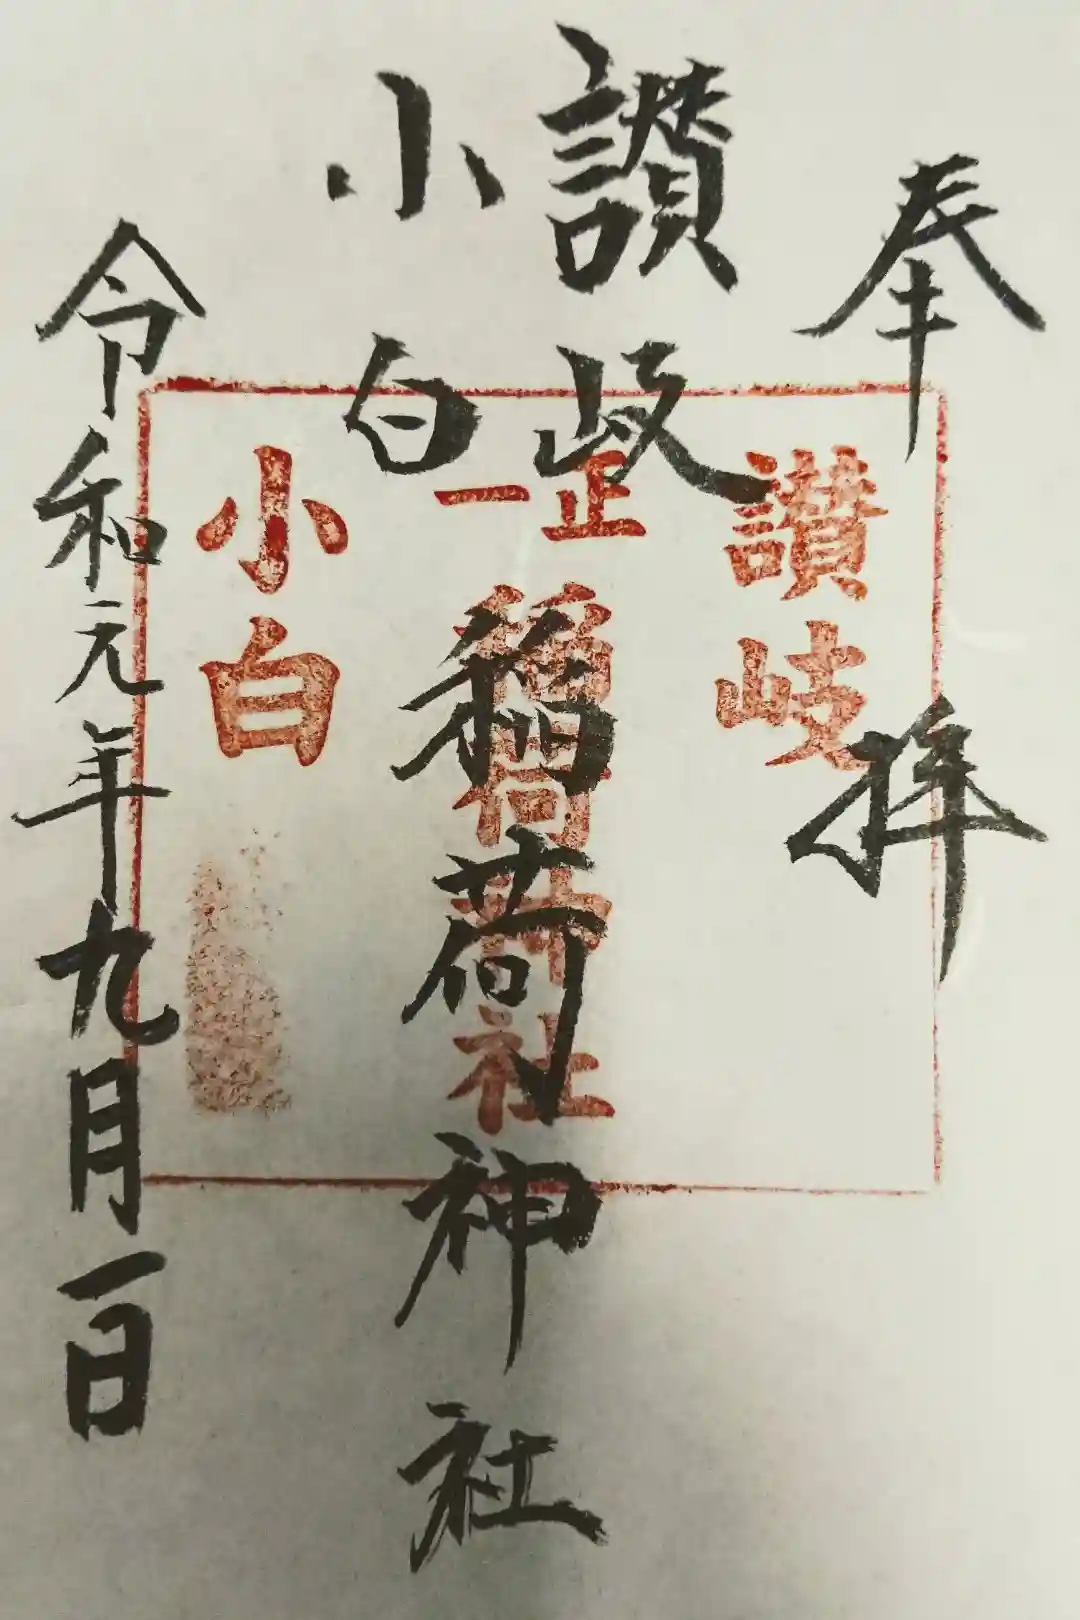 奉拝
讃岐
小白
稲荷神社
令和元年九月一日
讃岐
正一
稲荷神社
小白